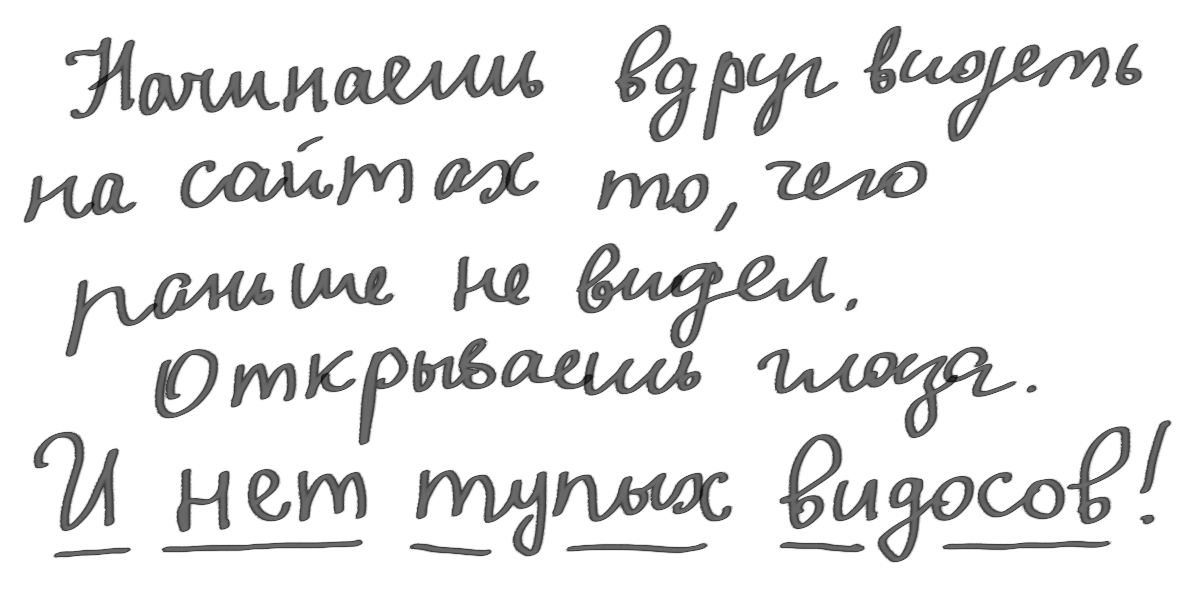 Начинаешь вдруг видеть
на сайтах то, чего
раньше не видел.
Открываешь глаза.
И нет тупых видосов!